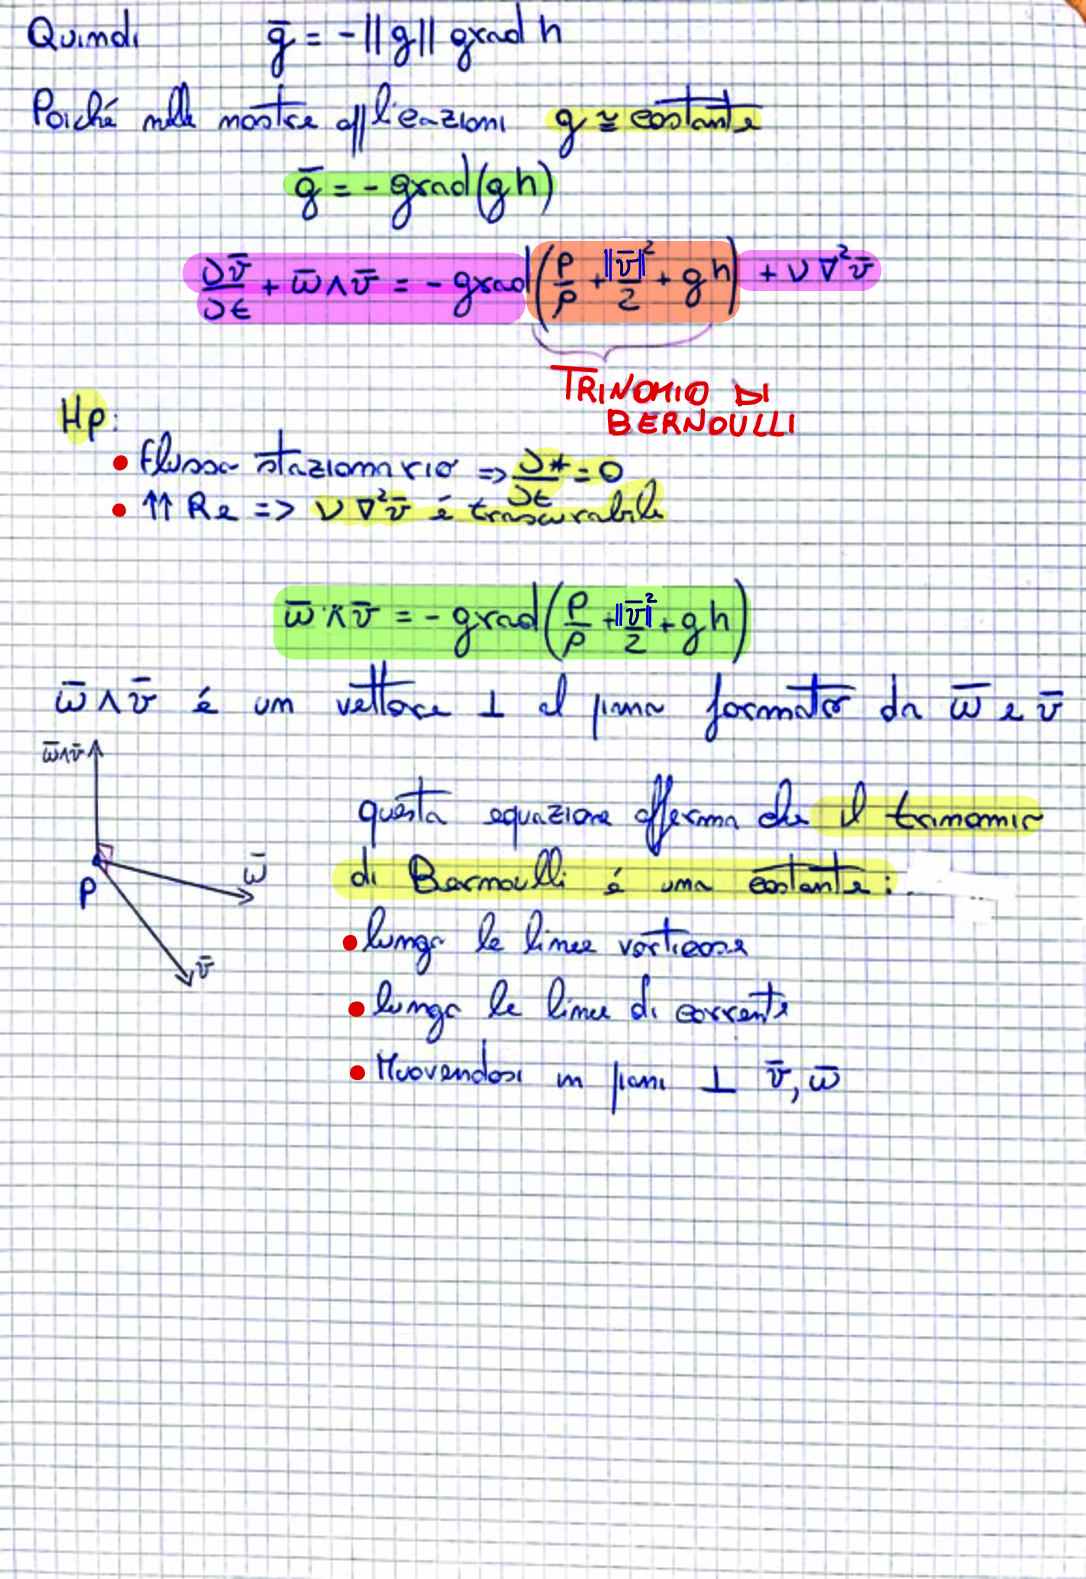 Quindi ḡ = -||g|| grad h
Poiché nelle nostre applicazioni g ≅ costante
ḡ = - grad(gh)
∂v̄/∂t + ω̄ ∧ v̄ = - grad(P/ρ + ||v̄||²/2 + gh) + ν∇²v̄
TRINOMIO DI
BERNOULLI
Hp:
• flusso stazionario => ∂*/∂t = 0
• ↑↑ Re => ν∇²v̄ é trascurabile
ω̄ ∧ v̄ = - grad(P/ρ + ||v̄||²/2 + gh)
ω̄ ∧ v̄ é un vettore ⊥ al piano formato da ω̄ e v̄
ω̄∧v̄
ω̄
P
v̄
questa equazione afferma che il trinomio
di Bernoulli é una costante:
• lungo le linee vorticose
• lungo le linee di corrente
• Muovendosi in piani ⊥ v̄, ω̄